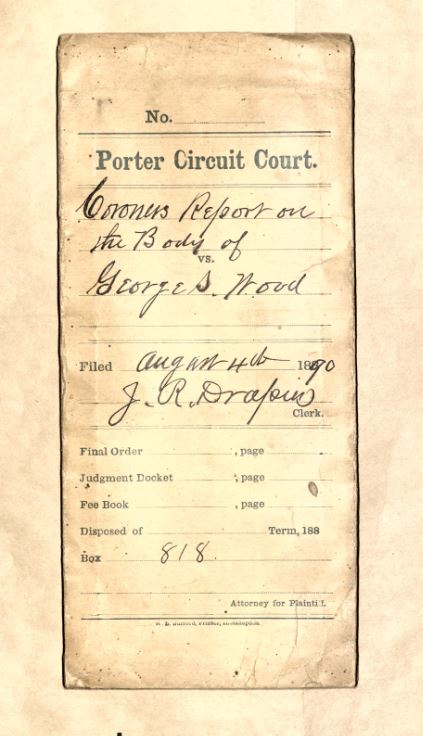 No.
Porter Circuit Court.
Coroners Report on
the Body of
vs.
George S. Wood
Filed August 4th 1890
J. R. Drapier
Clerk.
Final Order , page
Judgment Docket , page
Fee Book , page
Disposed of Term, 188
Box 818
Attorney for Plaintiff.